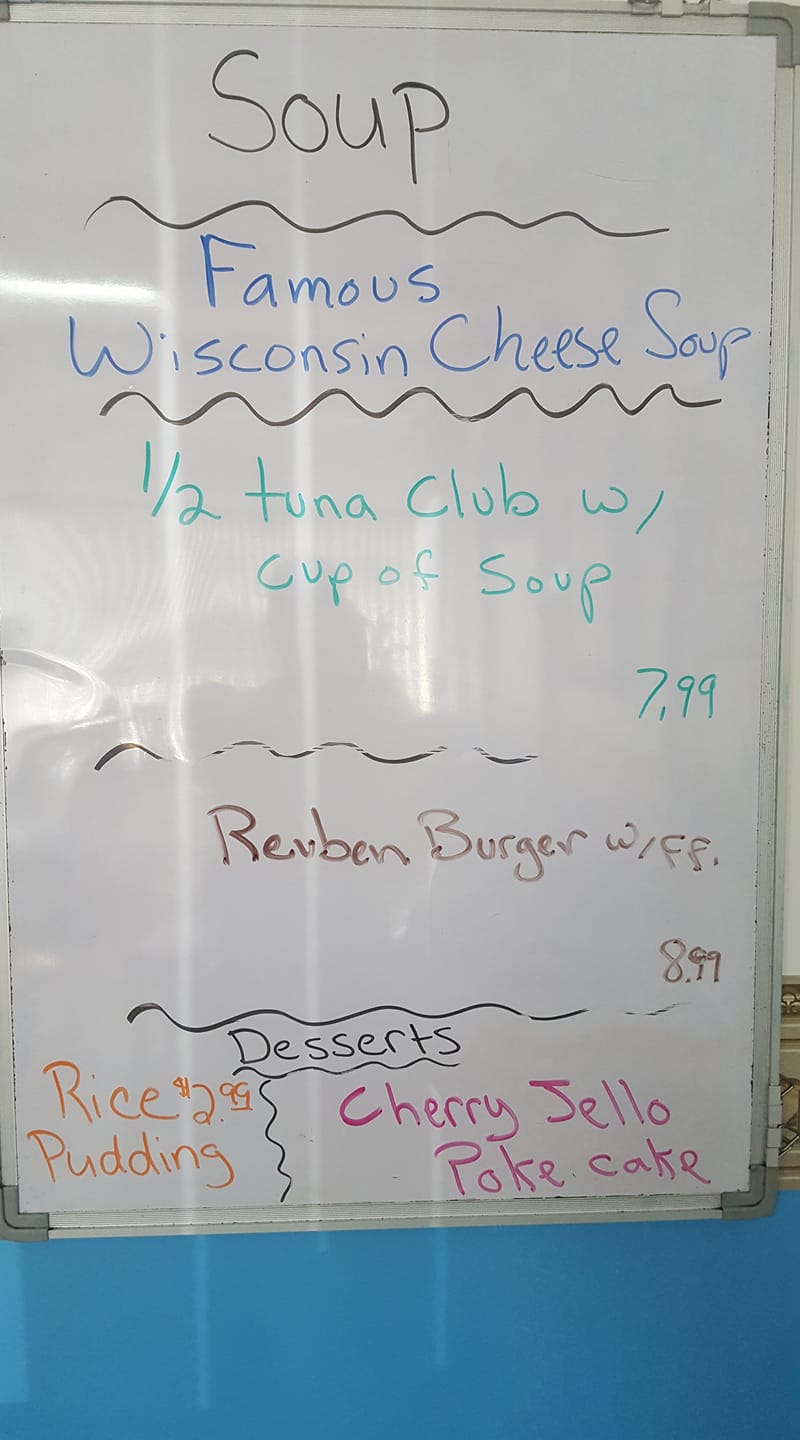 Soup
Famous
Wisconsin Cheese Soup
1/2 tuna Club w/
Cup of Soup
7.99
Reuben Burger w/FF.
8.99
Desserts
Rice $2.99
Pudding
Cherry Jello
Poke cake